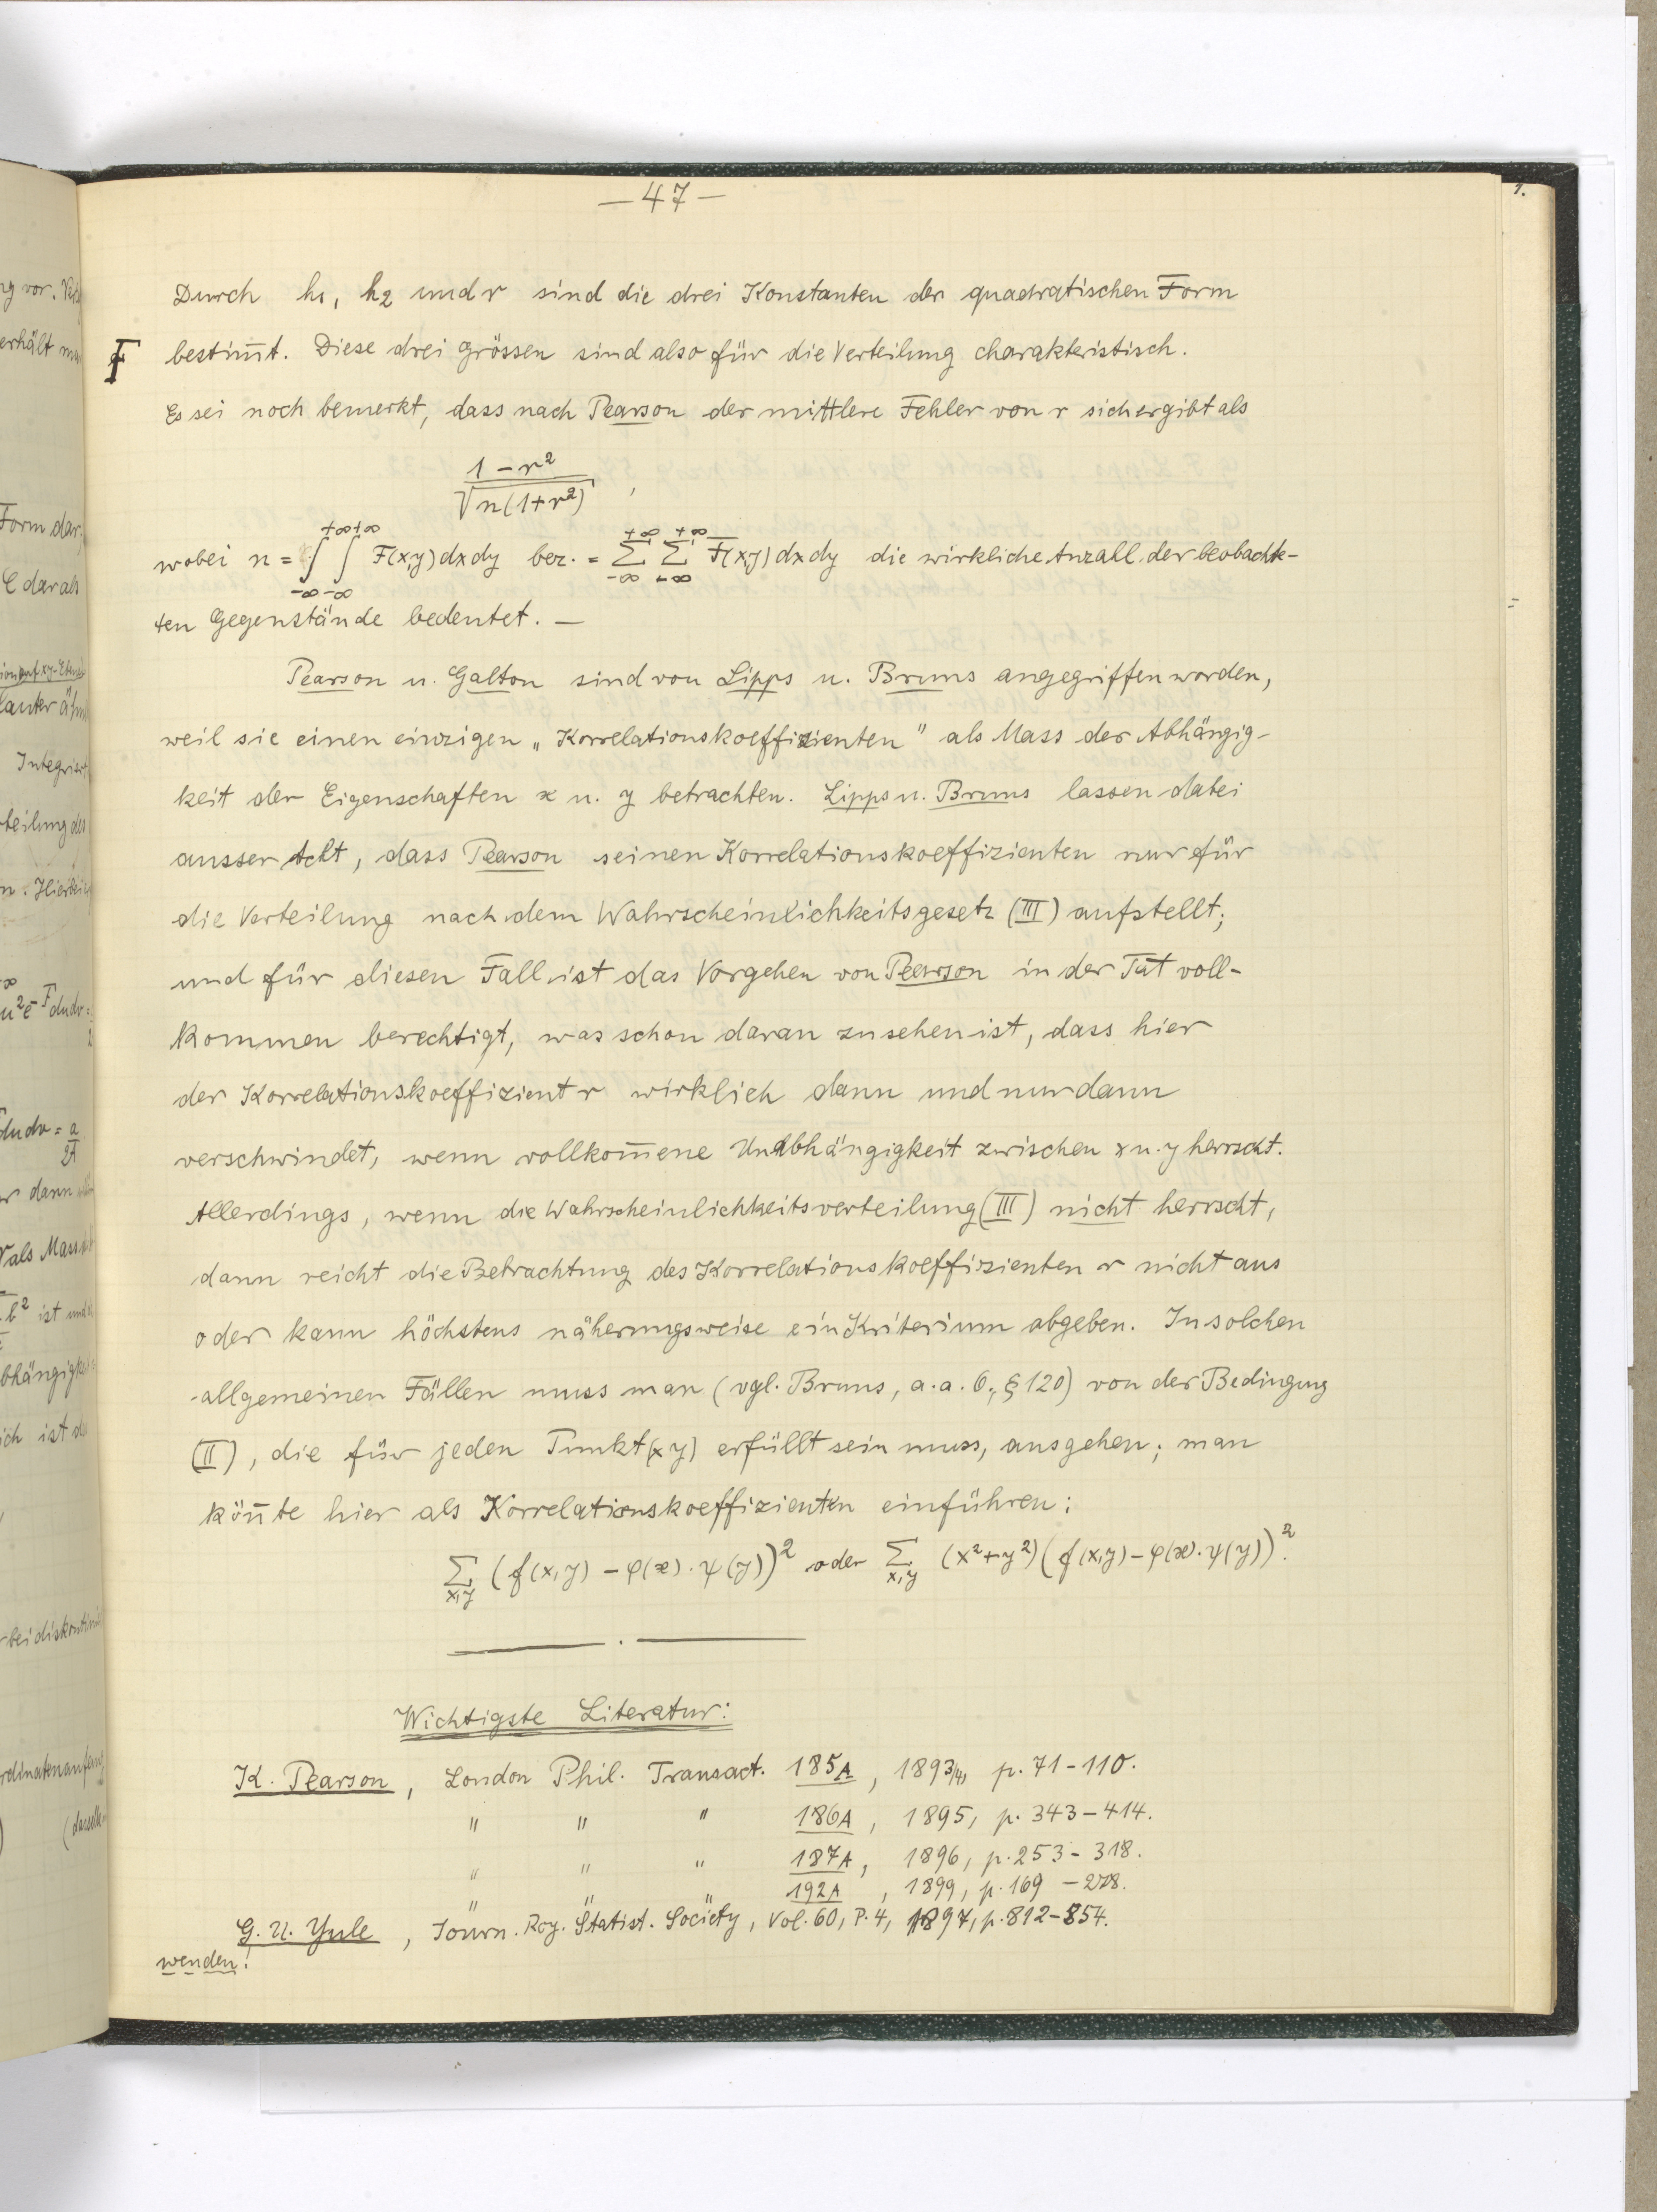 — 47 —
Durch h₁, h₂ und r sind die drei Konstanten der quadratischen Form
F bestim̅t. Diese drei Grössen sind also für die Verteilung charakteristisch.
Es sei noch bemerkt, dass nach Pearson der mittlere Fehler von r sich ergibt als
(1 − r²) / √n(1+r²) ,
wobei n = ∫_{−∞}^{+∞} ∫_{−∞}^{+∞} F(x,y) dx dy bez. = Σ_{−∞}^{+∞} Σ_{−∞}^{+∞} F(x,y) dx dy die wirkliche Anzall der beobachte-
ten Gegenstände bedeutet. —
Pearson u. Galton sind von Lipps u. Bruns angegriffen worden,
weil sie einen einzigen „Korrelationskoeffizienten" als Mass der Abhängig-
keit der Eigenschaften x u. y betrachten. Lipps u. Bruns lassen dabei
ausser Acht, dass Pearson seinen Korrelationskoeffizienten nur für
die Verteilung nach dem Wahrscheinlichkeitsgesetz (III) aufstellt;
und für diesen Fall ist das Vorgehen von Pearson in der Tat voll-
kommen berechtigt, was schon daran zu sehen ist, dass hier
der Korrelationskoeffizient r wirklich dann und nur dann
verschwindet, wenn vollkom̅ene Unabhängigkeit zwischen x u. y herrscht.
Allerdings, wenn die Wahrscheinlichkeitsverteilung (III) nicht herrscht,
dann reicht die Betrachtung des Korrelationskoeffizienten r nicht aus
oder kann höchstens näherungsweise ein Kriterium abgeben. In solchen
allgemeinen Fällen muss man (vgl. Bruns, a. a. O., § 120) von der Bedingung
(II), die für jeden Punkt (x y) erfüllt sein muss, ausgehen; man
kön̅te hier als Korrelationskoeffizienten einführen:
Σ_{x,y} (f(x,y) − φ(x)·ψ(y))² oder Σ_{x,y} (x²+y²)(f(x,y) − φ(x)·ψ(y))².
Wichtigste Literatur:
K. Pearson, London Phil. Transact. 185A, 1893/4, p. 71 - 110.
" " " 186A, 1895, p. 343 - 414.
" " " 187A, 1896, p. 253 - 318.
" " " 192A, 1899, p. 169 - 278.
G. U. Yule, Journ. Roy. Statist. Society, Vol. 60, P. 4, 1897, p. 812 - 854.
wenden!